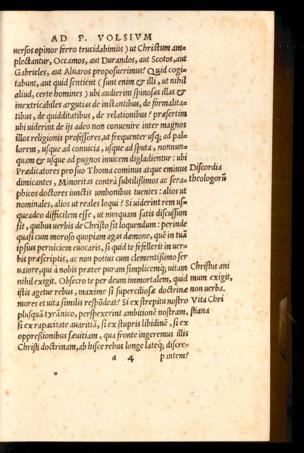 AD P. VOLSIVM
versos opinor ferro trucidabimus) ut Christum am-
plectantur, Occamos, aut Durandos, aut Scotos, aut
Gabrieles, aut Aluaros proposuerimus? Quid cogi-
tabunt, aut quid sentient (sunt enim & illi, ut nihil
aliud, certe homines) ubi audierint spinosas illas &
inextricabiles argutias de instantibus, de formalita-
tibus, de quidditatibus, de relationibus? præsertim
ubi uiderint de ijs adeo non conuenire inter magnos
illos religionis professores, ut frequenter usq; ad pal-
lorem, usque ad conuicia, usque ad sputa, nonnun-
quam & usque ad pugnos inuicem digladientur: ubi
Prædicatores pro suo Thoma cominus atque eminus
dimicantes, Minoritas contrà subtilissimos ac sera-
phicos doctores iunctis umbonibus tuentes: alios ut
nominales, alios ut reales loqui? Si uiderint rem us-
queadeo difficilem esse, ut nunquam satis discussum
sit, quibus uerbis de Christo sit loquendum: perinde
quasi cum moroso quopiam agas dæmone, quē in tuā
ipsius perniciem euocaris, si quid te fefellerit in uer-
bis præscriptis, ac non potius cum clementissimo ser
uatore, qui à nobis præter puram simplicemq; uitam
nihil exigit. Obsecro te per deum immortalem, quid
istis agetur rebus, maxime si superciliosæ doctrinæ
mores et uita similis respōdeāt? Si ex strepitu nostro
plusquā tyrānico, perspexerint ambitionē nostram,
si ex rapacitate auaritiā, si ex stupris libidinē, si ex
oppreßionibus sæuitiam, qua fronte ingeremus illis
Christi doctrinam, ab hisce rebus longe lateq; discre-
a 4 pantem?
Discordia
theologorū
Christus ani
mum exigit,
non uerba.
Vita Chri
stiana